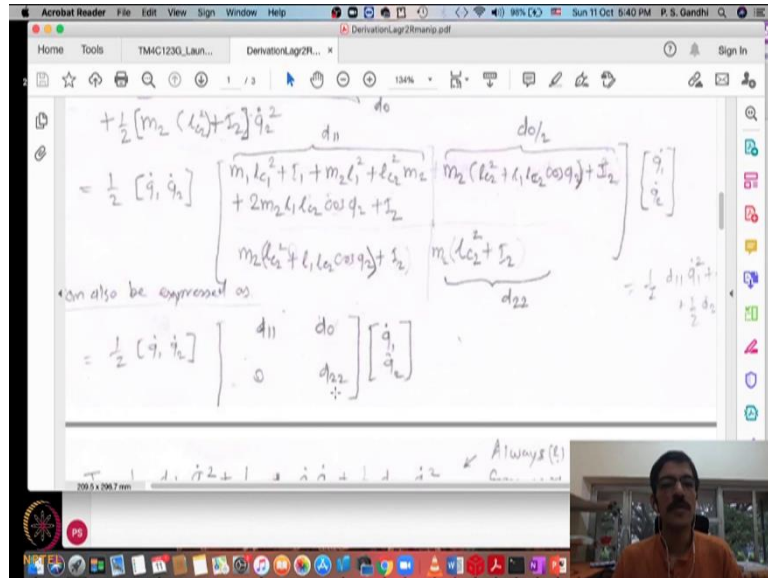 Acrobat Reader File Edit View Sign Window Help 98% Sun 11 Oct 5:40 PM P. S. Gandhi
DerivationLagr2Rmanip.pdf
Home Tools TM4C123G_Laun... DerivationLagr2R... × Sign In
1 / 3 134%
do
+ 1/2 [m₂ (lc₂²) + I₂] q̇₂²
d₁₁ do/2
= 1/2 [q̇₁ q̇₂] [ m₁ lc₁² + I₁ + m₂l₁² + lc₂² m₂ m₂(lc₂² + l₁ lc₂ cos q₂) + I₂ ] [q̇₁ q̇₂]
+ 2m₂ l₁ lc₂ cos q₂ + I₂
m₂(lc₂² + l₁ lc₂ cos q₂) + I₂) m (lc₂² + I₂)
d₂₂
= 1/2 d₁₁ q̇₁² +
+ 1/2 d₂
an also be expressed as
= 1/2 [q̇₁ q̇₂] [ d₁₁ do
0 d₂₂ ] [q̇₁ q̇₂]
Always(!)
209.5 x 296.7 mm
PS
NPTEL